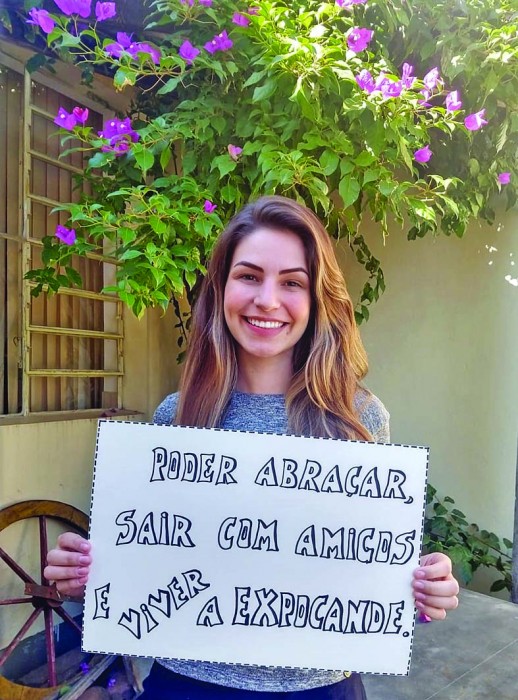 PODER ABRAÇAR,
SAIR COM AMIGOS
E VIVER A EXPOCANDE.